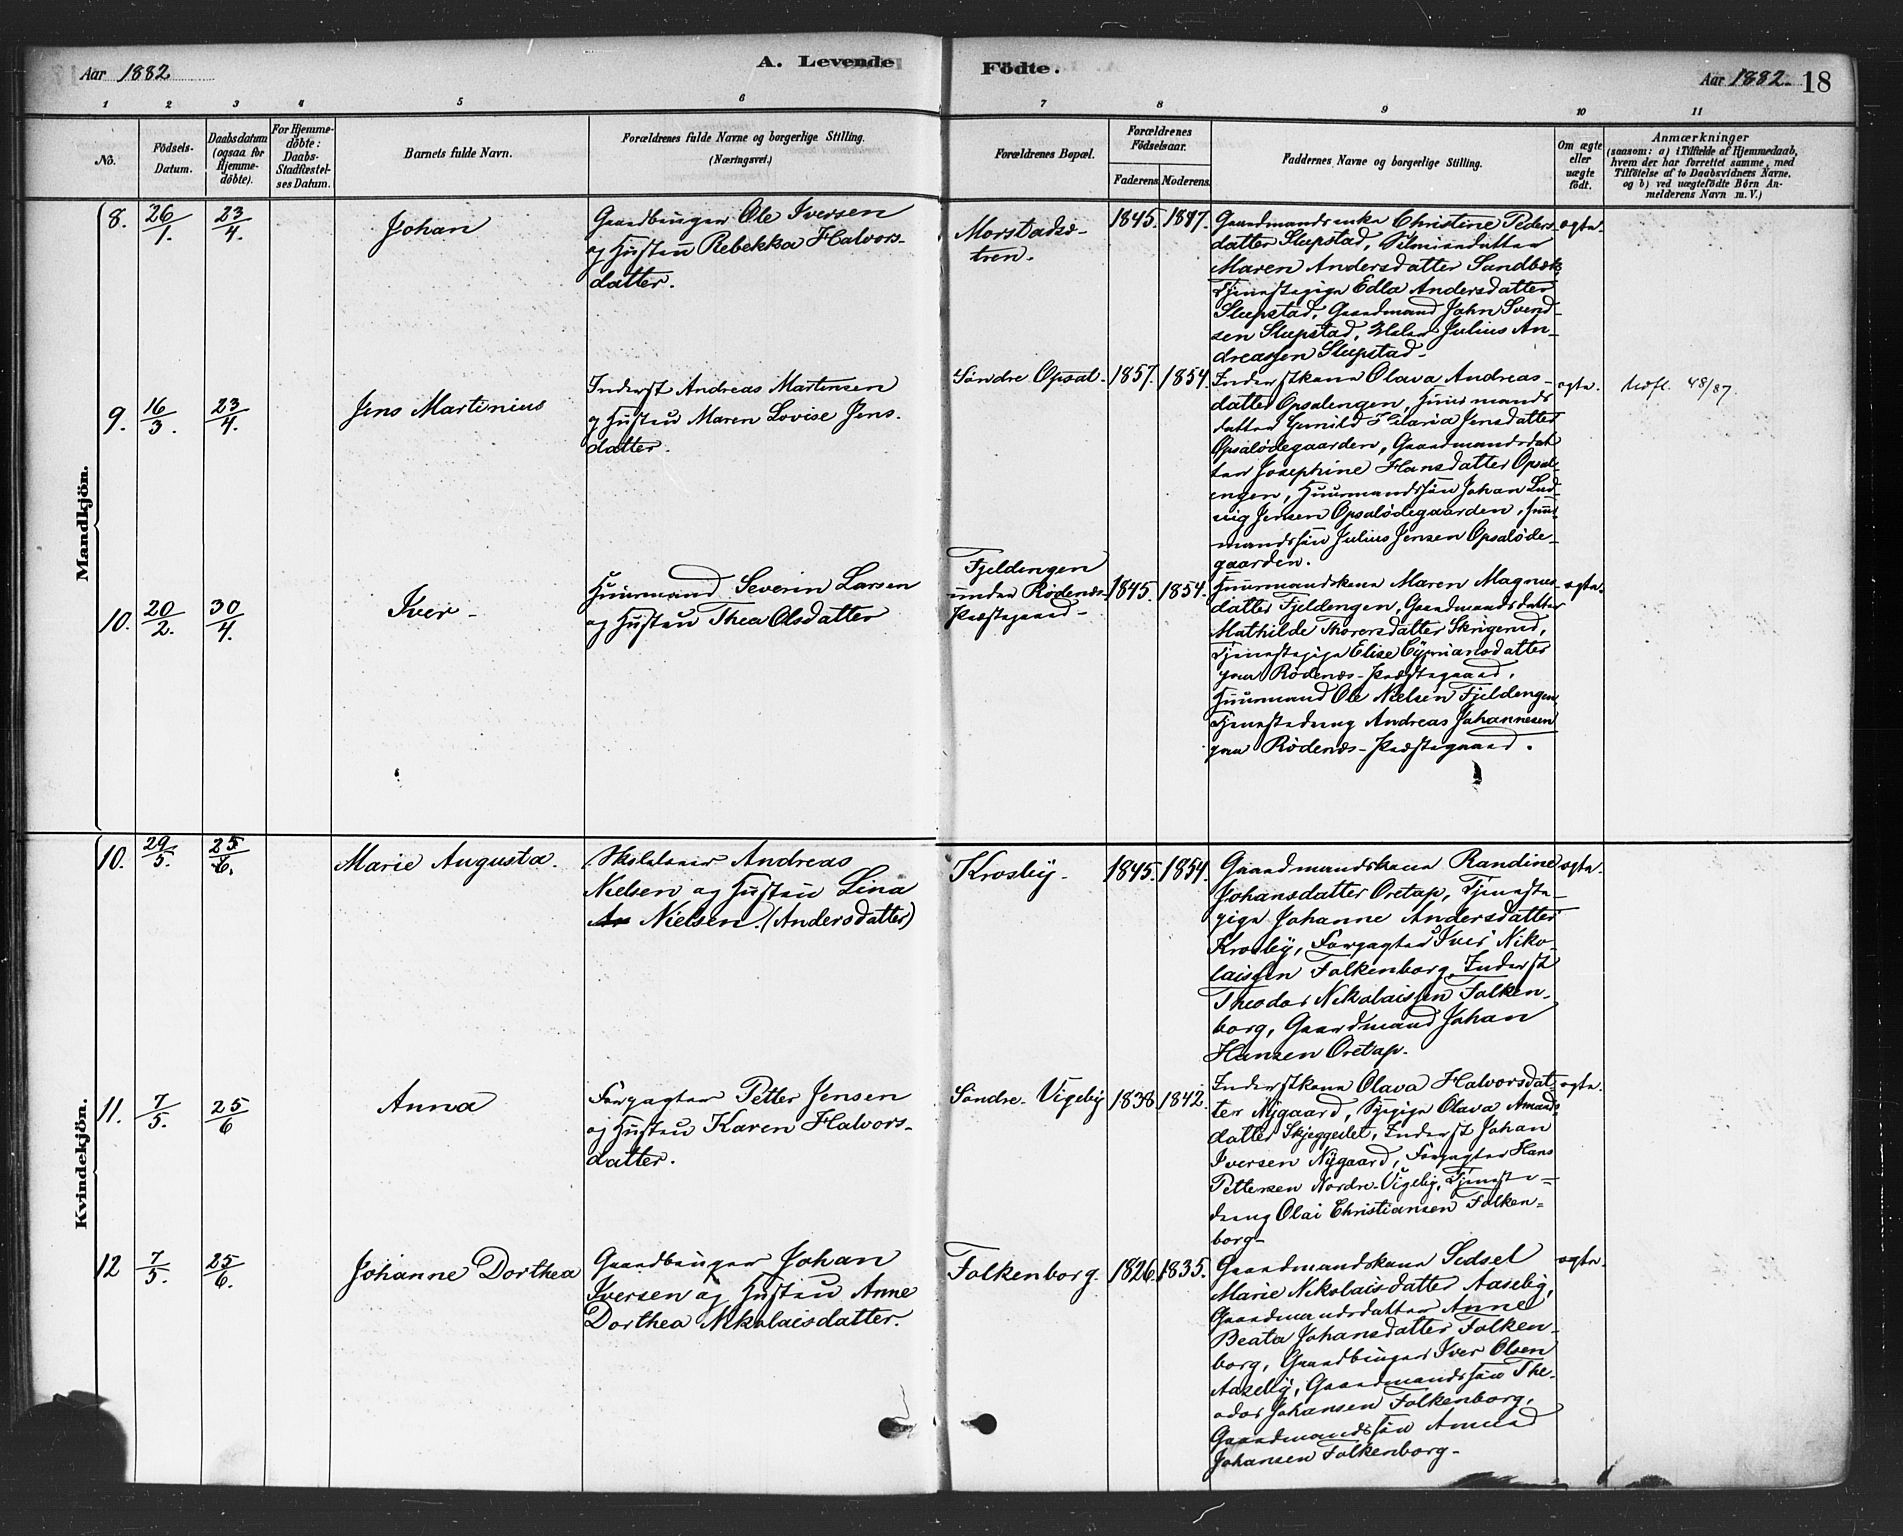 Aar 1882
A. Levende Födte.
Aar 1882. 18
1 2 3 4 5 6 7 8 9 10 11
No.
Födsels-
Datum.
Daabsdatum
(ogsaa for
Hjemme-
döbte).
For Hjemme-
döbte:
Daabs-
Stadfæstel-
ses Datum.
Barnets fulde Navn.
Forældrenes fulde Navne og borgerlige Stilling.
(Næringsvei.)
Forældrenes Bopæl.
Forældrenes
Födselsaar.
Faderens. Moderens.
Faddernes Navne og borgerlige Stilling.
Om ægte
eller
uægte
födt.
Anmærkninger
(saasom: a) i Tilfælde af Hjemmedaab,
hvem der har forrettet samme, med
Tilföielse af to Daabsvidners Navne.
og b) ved uægtefödte Börn An-
melderens Navn m. V.)
Mandkjön.
8. 26/1. 23/4. Johan
Gaardbruger Ole Iversen
og Hustru Rebekka Halvors-
datter.
Morstadsæ-
tren.
1845. 1847.
Gaardmandsenke Christine Peders-
datter Slupstad,
Maren Andersdatter Sandbæk,
Tjenestepige Edla Andersdatter
Slupstad, Gaardmand John Svend-
sen Slupstad, Julius An-
dreassen Slupstad.
ægte.
9. 16/3. 23/4. Jens Martinius
Inderst Andreas Martinsen
og Hustru Maren Lovise Jens-
datter.
Søndre Opsal. 1857. 1854.
Inderstkone Olava Andreas-
datter Opsalengen, Huusmands-
datter Gunild Helaria Jensdatter
Opsalødegaarden, Gaardmandsdat-
ter Josephine Hansdatter Opsal-
engen, Huusmandssøn Johan Lud-
vig Jensen Opsalødegaarden, Huus-
mandssøn Julius Jensen Opsaløde-
gaarden.
ægte.
Udfl. 48/87.
10. 20/2. 30/4. Iver
Huusmand Severin Larsen
og Hustru Thea Olsdatter
Fjeldengen
under Rødenæs-
Præstegaard
1845. 1854.
Huusmandskone Maren Magnus-
datter Fjeldengen, Gaardmandsdatter
Mathilde Thorersdatter Skrigerud,
Tjenestepige Elise Cypriansdatter
paa Rødenæs-Præstegaard,
Huusmand Ole Nielsen Fjeldengen,
Tjenestedreng Andreas Johannesen
paa Rødenæs-Præstegaard.
ægte.
Kvindekjön.
10. 29/5. 25/6. Marie Augusta.
Skolelærer Andreas
Nielsen og Hustru Lina
Nielsen. (Andersdatter)
Krosby. 1845. 1854.
Gaardmandskone Randine
Johansdatter Oretap, Tjeneste-
pige Johanne Andersdatter
Krosby, Forpagter Iver Niko-
laissen Falkenborg, Inderst
Theodor Nikolaissen Falken-
borg, Gaardmand Johan
Hansen Oretap.
ægte.
11. 7/5. 25/6 Anna
Forpagter Petter Jensen
og Hustru Karen Halvors-
datter.
Søndre Vigeby 1838 1842.
Inderstkone Olava Halvorsdat-
ter Nygaard, Sypige Olava Amunds-
datter Skjeggerlet, Inderst Johan
Iversen Nygaard, Forpagter Hans
Pettersen Nordre-Vigeby, Tjeneste-
dreng Olai Christiansen Falken-
borg
ægte.
12 7/5. 25/6. Johanne Dorthea
Gaardbruger Johan
Iversen og Hustru Anne
Dorthea Nikolaisdatter.
Falkenborg. 1826. 1835.
Gaardmandskone Sedsel
Marie Nikolaisdatter Aaseby,
Gaardmandsdatter Anne
Beata Johansdatter Falken-
borg, Gaardbruger Iver Olsen
Aaseby, Gaardmandssøn The-
odor Johansen Falkenborg,
Gaardmandssøn Amund
Johansen Falkenborg
ægte.